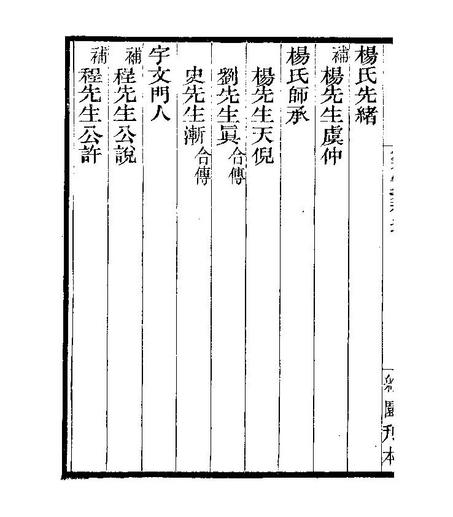 楊氏先緒
補 楊先生虞仲
楊氏師承
楊先生天倪
劉先生眞 合傳
史先生漸 合傳
宇文門人
補 程先生公說
補 程先生公許
園刋本